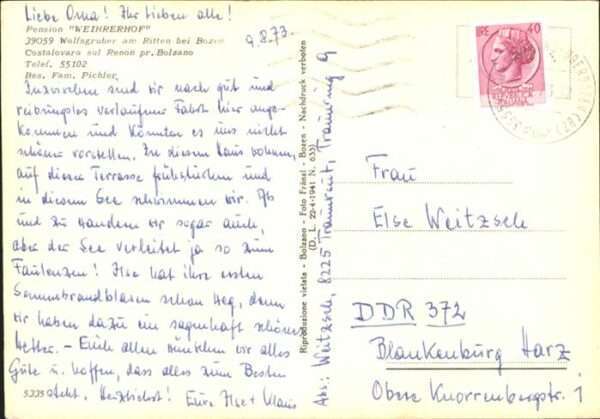 Liebe Oma! Ihr lieben alle!
Pension "WEIHRERHOF"
39059 Wolfsgruben am Ritten bei Bozen
Costalovara sul Renon pr. Bolzano
Telef. 55102
Bes. Fam. Pichler
9.8.73.
Inzwischen sind wir nach gut und
reibungslos verlaufener Fahrt hier ange-
kommen und könnten es uns nicht
schöner vorstellen. In diesem Haus wohnen,
auf dieser Terrasse frühstücken und
in diesem See schwimmen wir. Ab
und zu wandern wir sogar auch,
aber der See verleitet ja so zum
Faulenzen! Ilse hat ihre ersten
Sonnenbrandblasen schon weg, denn
wir haben dazu ein sagenhaft schönes
Wetter. - Euch allen wünschen wir alles
Gute u. hoffen, dass alles zum Besten
steht. Herzlichst! Eure Ilse + Klaus
5335
Riproduzione vietata - Bolzano - Foto Fränzl - Bozen - Nachdruck verboten
(D. L. 22-4-1941 N. 633)
Abs.: Weitzsch, 8225 Traunreut, Traunring 9
LIRE 40
Frau
Else Weitzsch
DDR 372
Blankenburg Harz
Obere Knorrenbergstr. 1